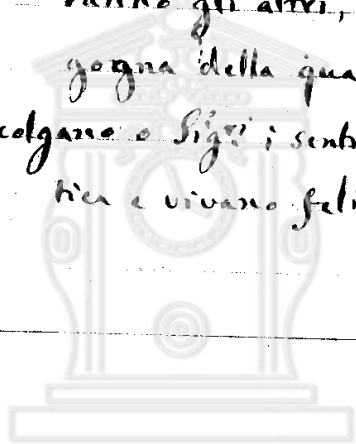 ranno gli altri,
gogna della qua
colgano o Sigri i senti
tica e vivano feli